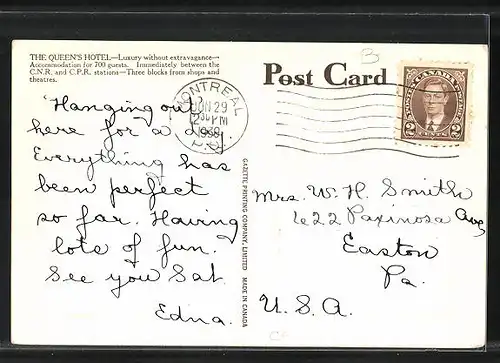 THE QUEEN'S HOTEL—Luxury without extravagance—
Accommodation for 700 guests. Immediately between the
C.N.R. and C.P.R. stations—Three blocks from shops and
theatres.
Post Card
MONTREAL
JUN 29
PM
1938
P.Q.
CANADA
2 CENTS 2
Hanging out
here for a day.
Everything has
been perfect
so far. Having
lots of fun.
See you Sat.
Edna.
GAZETTE PRINTING COMPANY, LIMITED MADE IN CANADA
Mrs. W. H. Smith
622 Paxinosa Ave
Easton
Pa.
U.S.A.